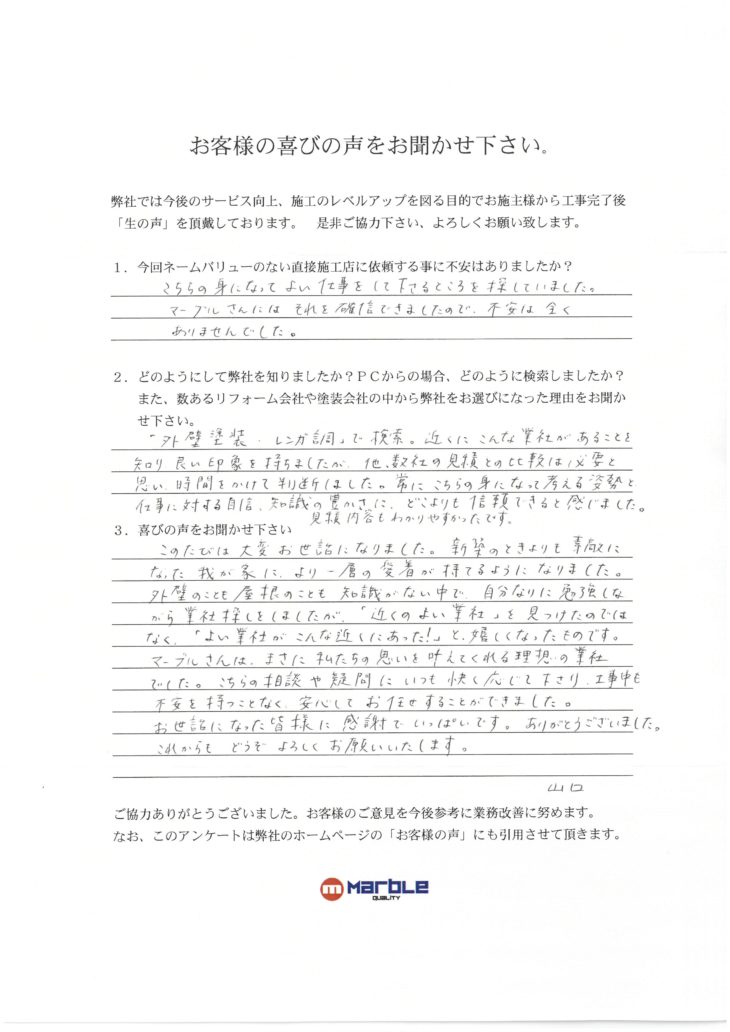 お客様の喜びの声をお聞かせ下さい。
弊社では今後のサービス向上、施工のレベルアップを図る目的でお施主様から工事完了後
「生の声」を頂戴しております。 是非ご協力下さい、よろしくお願い致します。
1．今回ネームバリューのない直接施工店に依頼する事に不安はありましたか？
こちらの身になってよい仕事をして下さるところを探していました。
マーブルさんには それを確信できましたので、不安は全く
ありませんでした。
2．どのようにして弊社を知りましたか？PCからの場合、どのように検索しましたか？
また、数あるリフォーム会社や塗装会社の中から弊社をお選びになった理由をお聞か
せ下さい。
「外壁塗装・レンガ調」で検索。近くにこんな業社があることを
知り良い印象を持ちましたが、他、数社の見積との比較は必要と
思い、時間をかけて判断しました。常にこちらの身になって考える姿勢と
仕事に対する自信、知識の豊かさに、どこよりも信頼できると感じました。
見積内容もわかりやすかったです。
3．喜びの声をお聞かせ下さい
このたびは大変お世話になりました。新築のときよりも素敵に
なった我が家に、より一層の愛着が持てるようになりました。
外壁のことも屋根のことも知識がない中で、自分なりに勉強しな
がら業社探しをしましたが、「近くのよい業社」を見つけたのでは
なく、「よい業社がこんな近くにあった!」と、嬉しくなったものです。
マーブルさんは、まさに私たちの思いを叶えてくれる理想の業社
でした。こちらの相談や疑問にいつも快く応じて下さり、工事中も
不安を持つことなく、安心してお任せすることができました。
お世話になった皆様に感謝でいっぱいです。ありがとうございました。
これからもどうぞよろしくお願いいたします。
山口
ご協力ありがとうございました。お客様のご意見を今後参考に業務改善に努めます。
なお、このアンケートは弊社のホームページの「お客様の声」にも引用させて頂きます。
m MARBLE
QUALITY